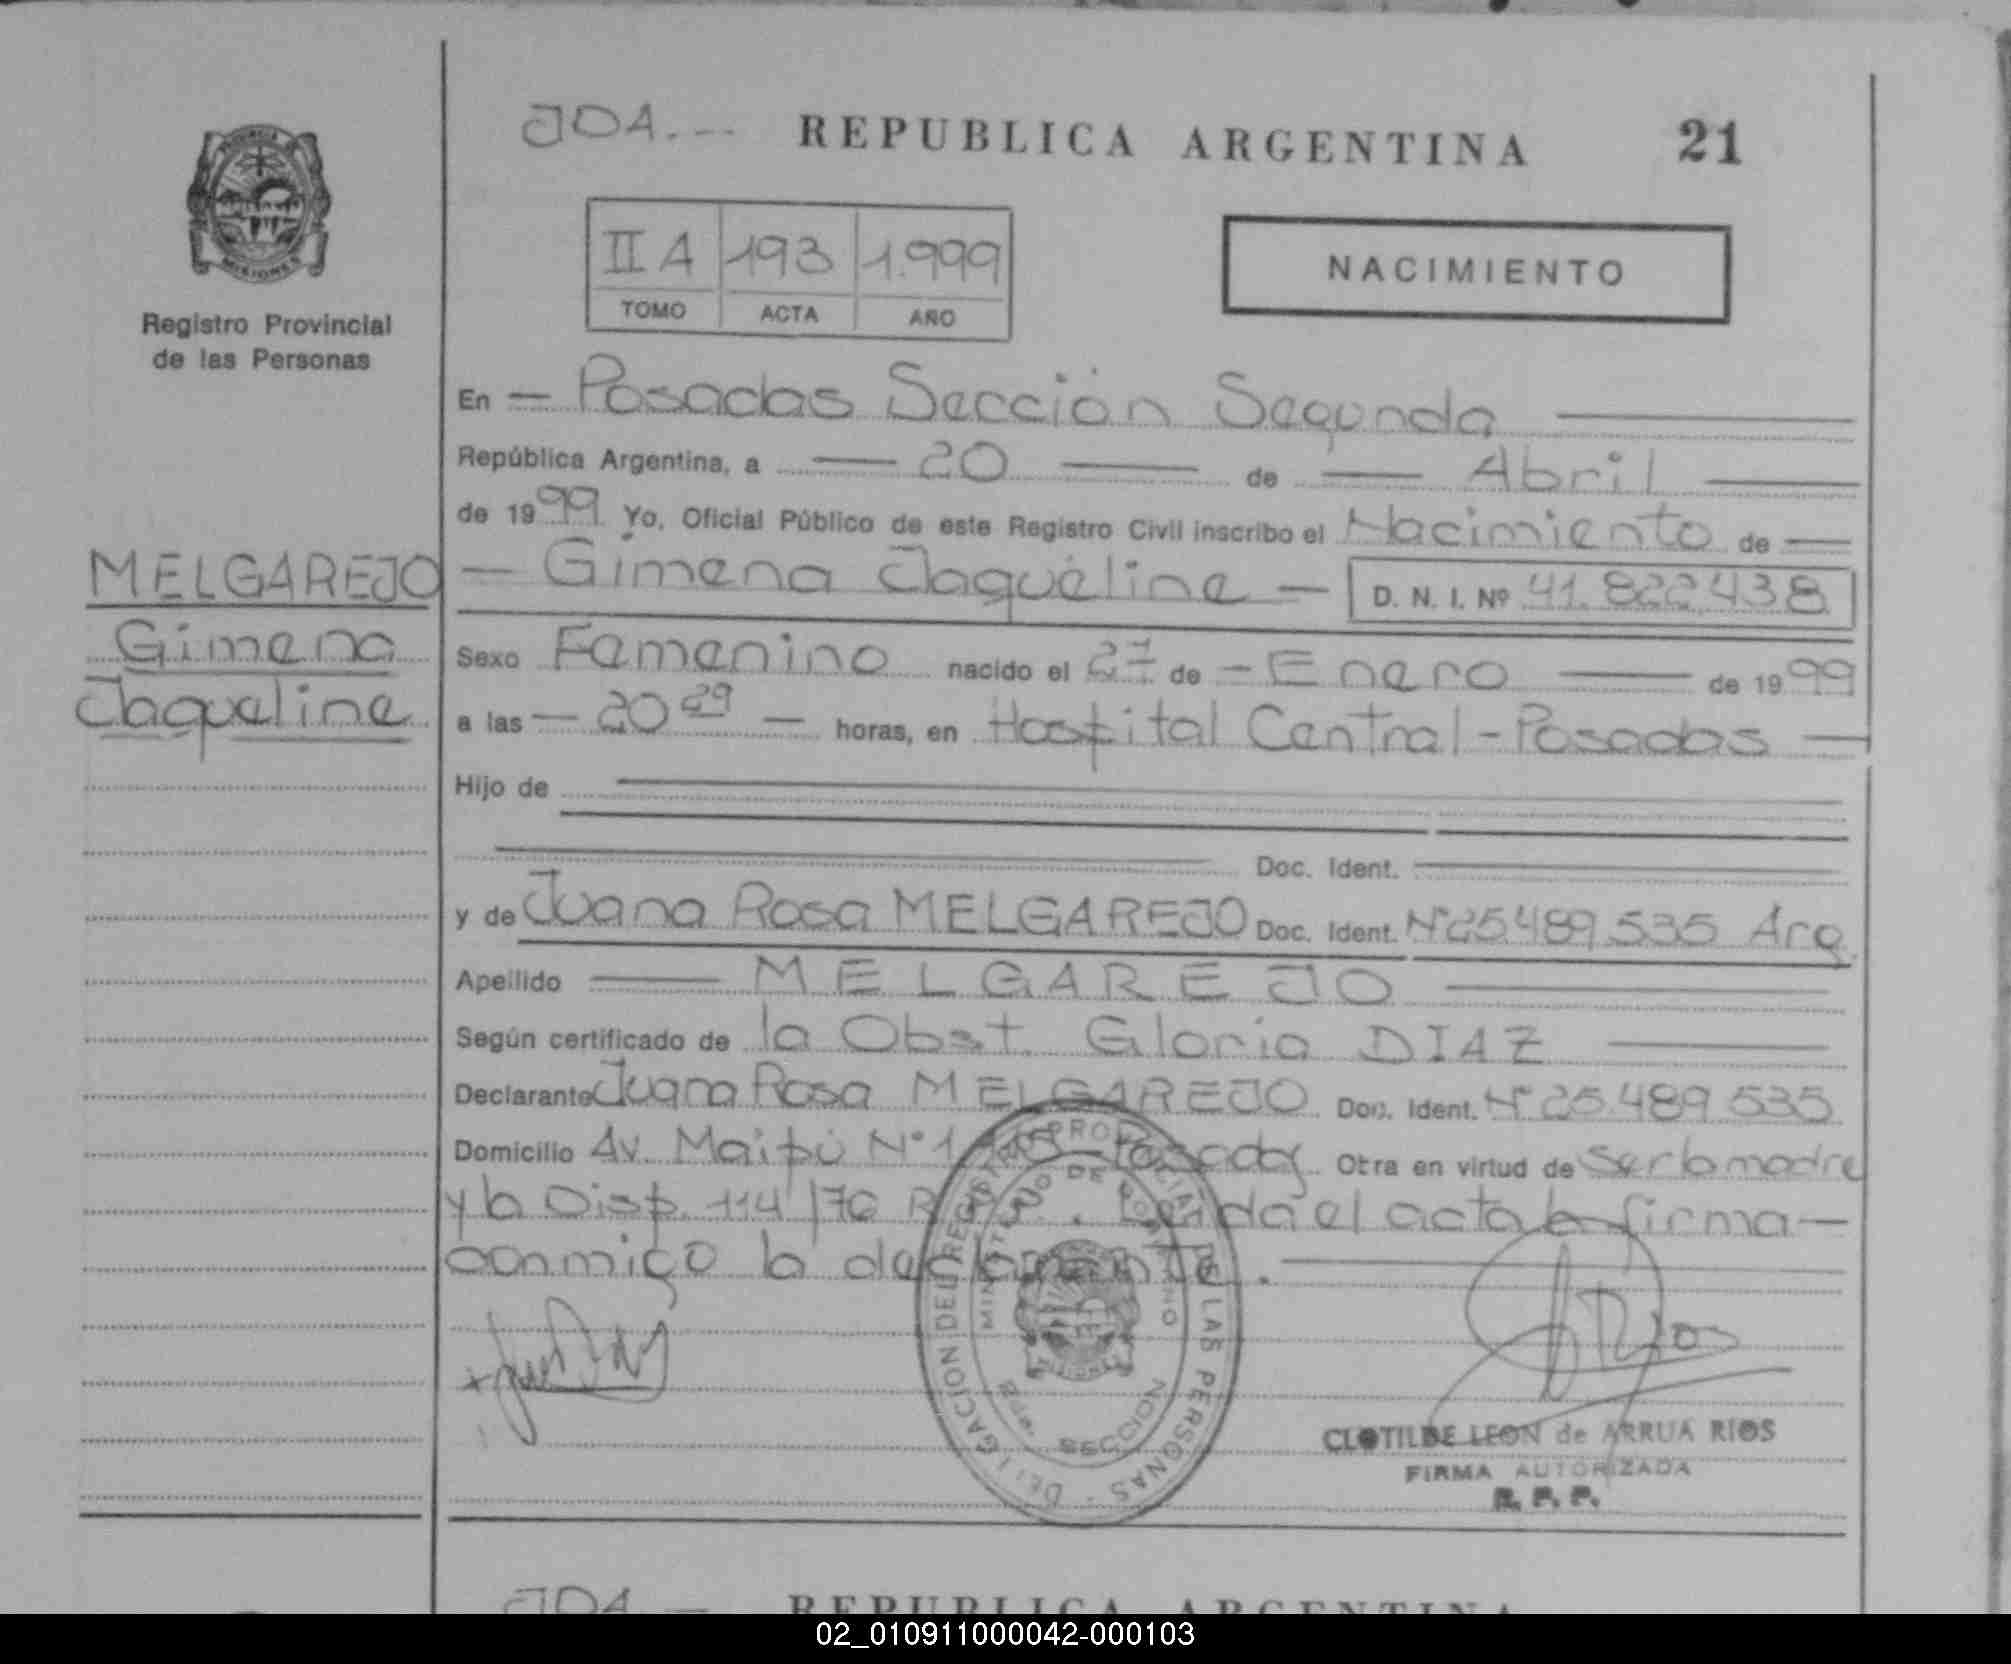 JDA.-- REPUBLICA ARGENTINA 21
PROVINCIA DE MISIONES
Registro Provincial
de las Personas
II A 193 1.999
TOMO ACTA AÑO
NACIMIENTO
En — Posadas Sección Segunda —
República Argentina, a — 20 — de — Abril —
de 1999 Yo, Oficial Público de este Registro Civil inscribo el Nacimiento de —
MELGAREJO
Gimena
Jaqueline
— Gimena Jaqueline — D. N. I. Nº 41.822.438
Sexo Femenino nacido el 27 de - Enero — de 1999
a las — 20 29 — horas, en Hospital Central - Posadas —
Hijo de
Doc. Ident.
y de Juana Rosa MELGAREJO Doc. Ident. Nº 25.489.535 Arg.
Apellido — MELGAREJO —
Según certificado de la Obst. Gloria DIAZ —
Declarante Juana Rosa MELGAREJO Doc. Ident. Nº 25.489.535
Domicilio Av. Maipú Nº Posadas Otra en virtud de ser la madre
y la Disp. 114/76 Leída el acta la firma —
conmigo la declarante. —
DELEGACION DEL REGISTRO PROVINCIAL DE LAS PERSONAS -
MINISTERIO DE GOBIERNO
SECCION
CLOTILDE LEON de ARRUA RIOS
FIRMA AUTORIZADA
R. P. P.
JDA. — REPUBLICA ARGENTINA
02_010911000042-000103